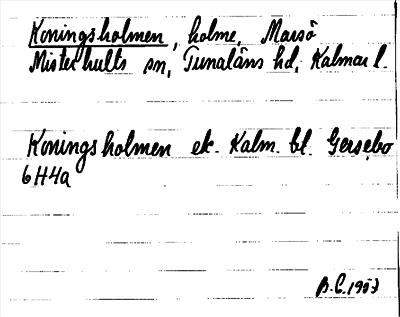 Koningsholmen, holme, Marsö
Misterhults sn, Tunaläns hd, Kalmar l.
Koningsholmen ek. Kalm. bl. Gersebo
6H4a
B.E. 1953